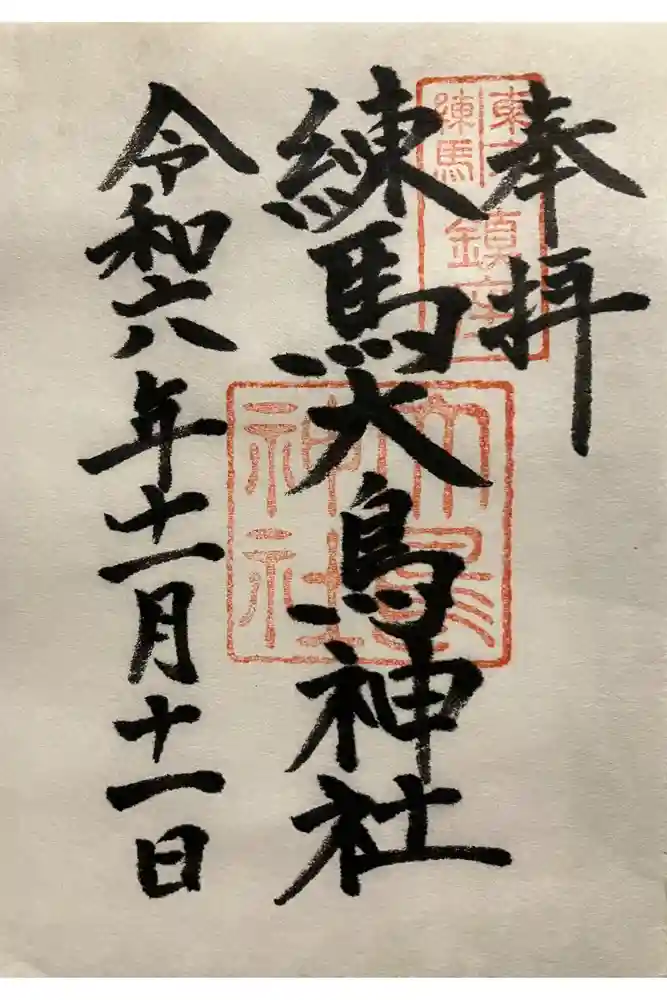 奉拝
東京
練馬
鎮座
練馬大鳥神社
大鳥
神社
令和六年十一月十一日